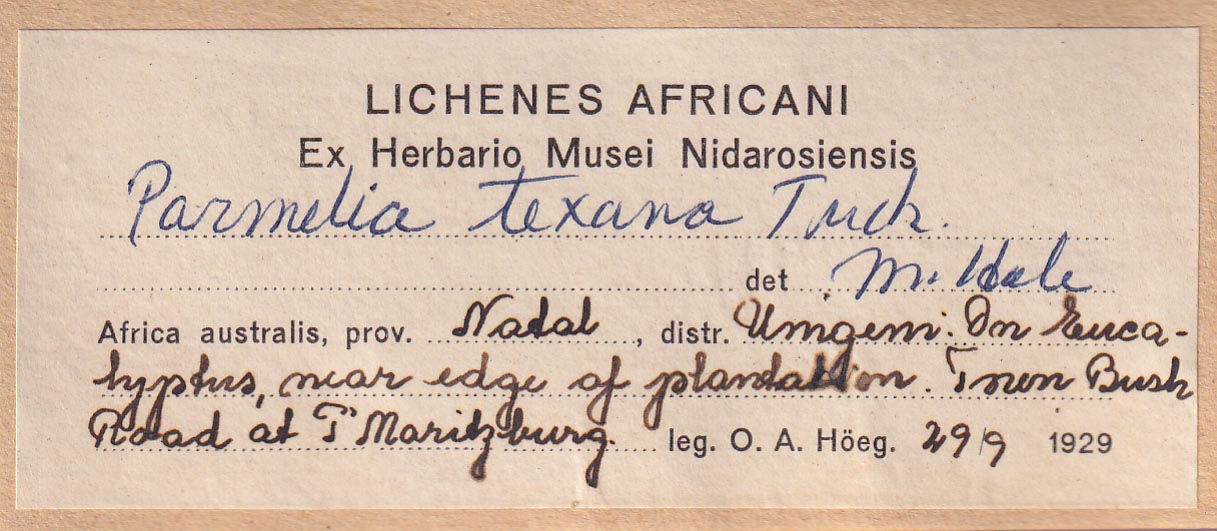 LICHENES AFRICANI
Ex Herbario Musei Nidarosiensis
Parmelia texana Tuck.
det M. Hale
Africa australis, prov. Natal, distr. Umgeni. On Euca-
lyptus, near edge of plantation. Bush
Road at P'Maritzburg. leg. O. A. Höeg. 29/9 1929